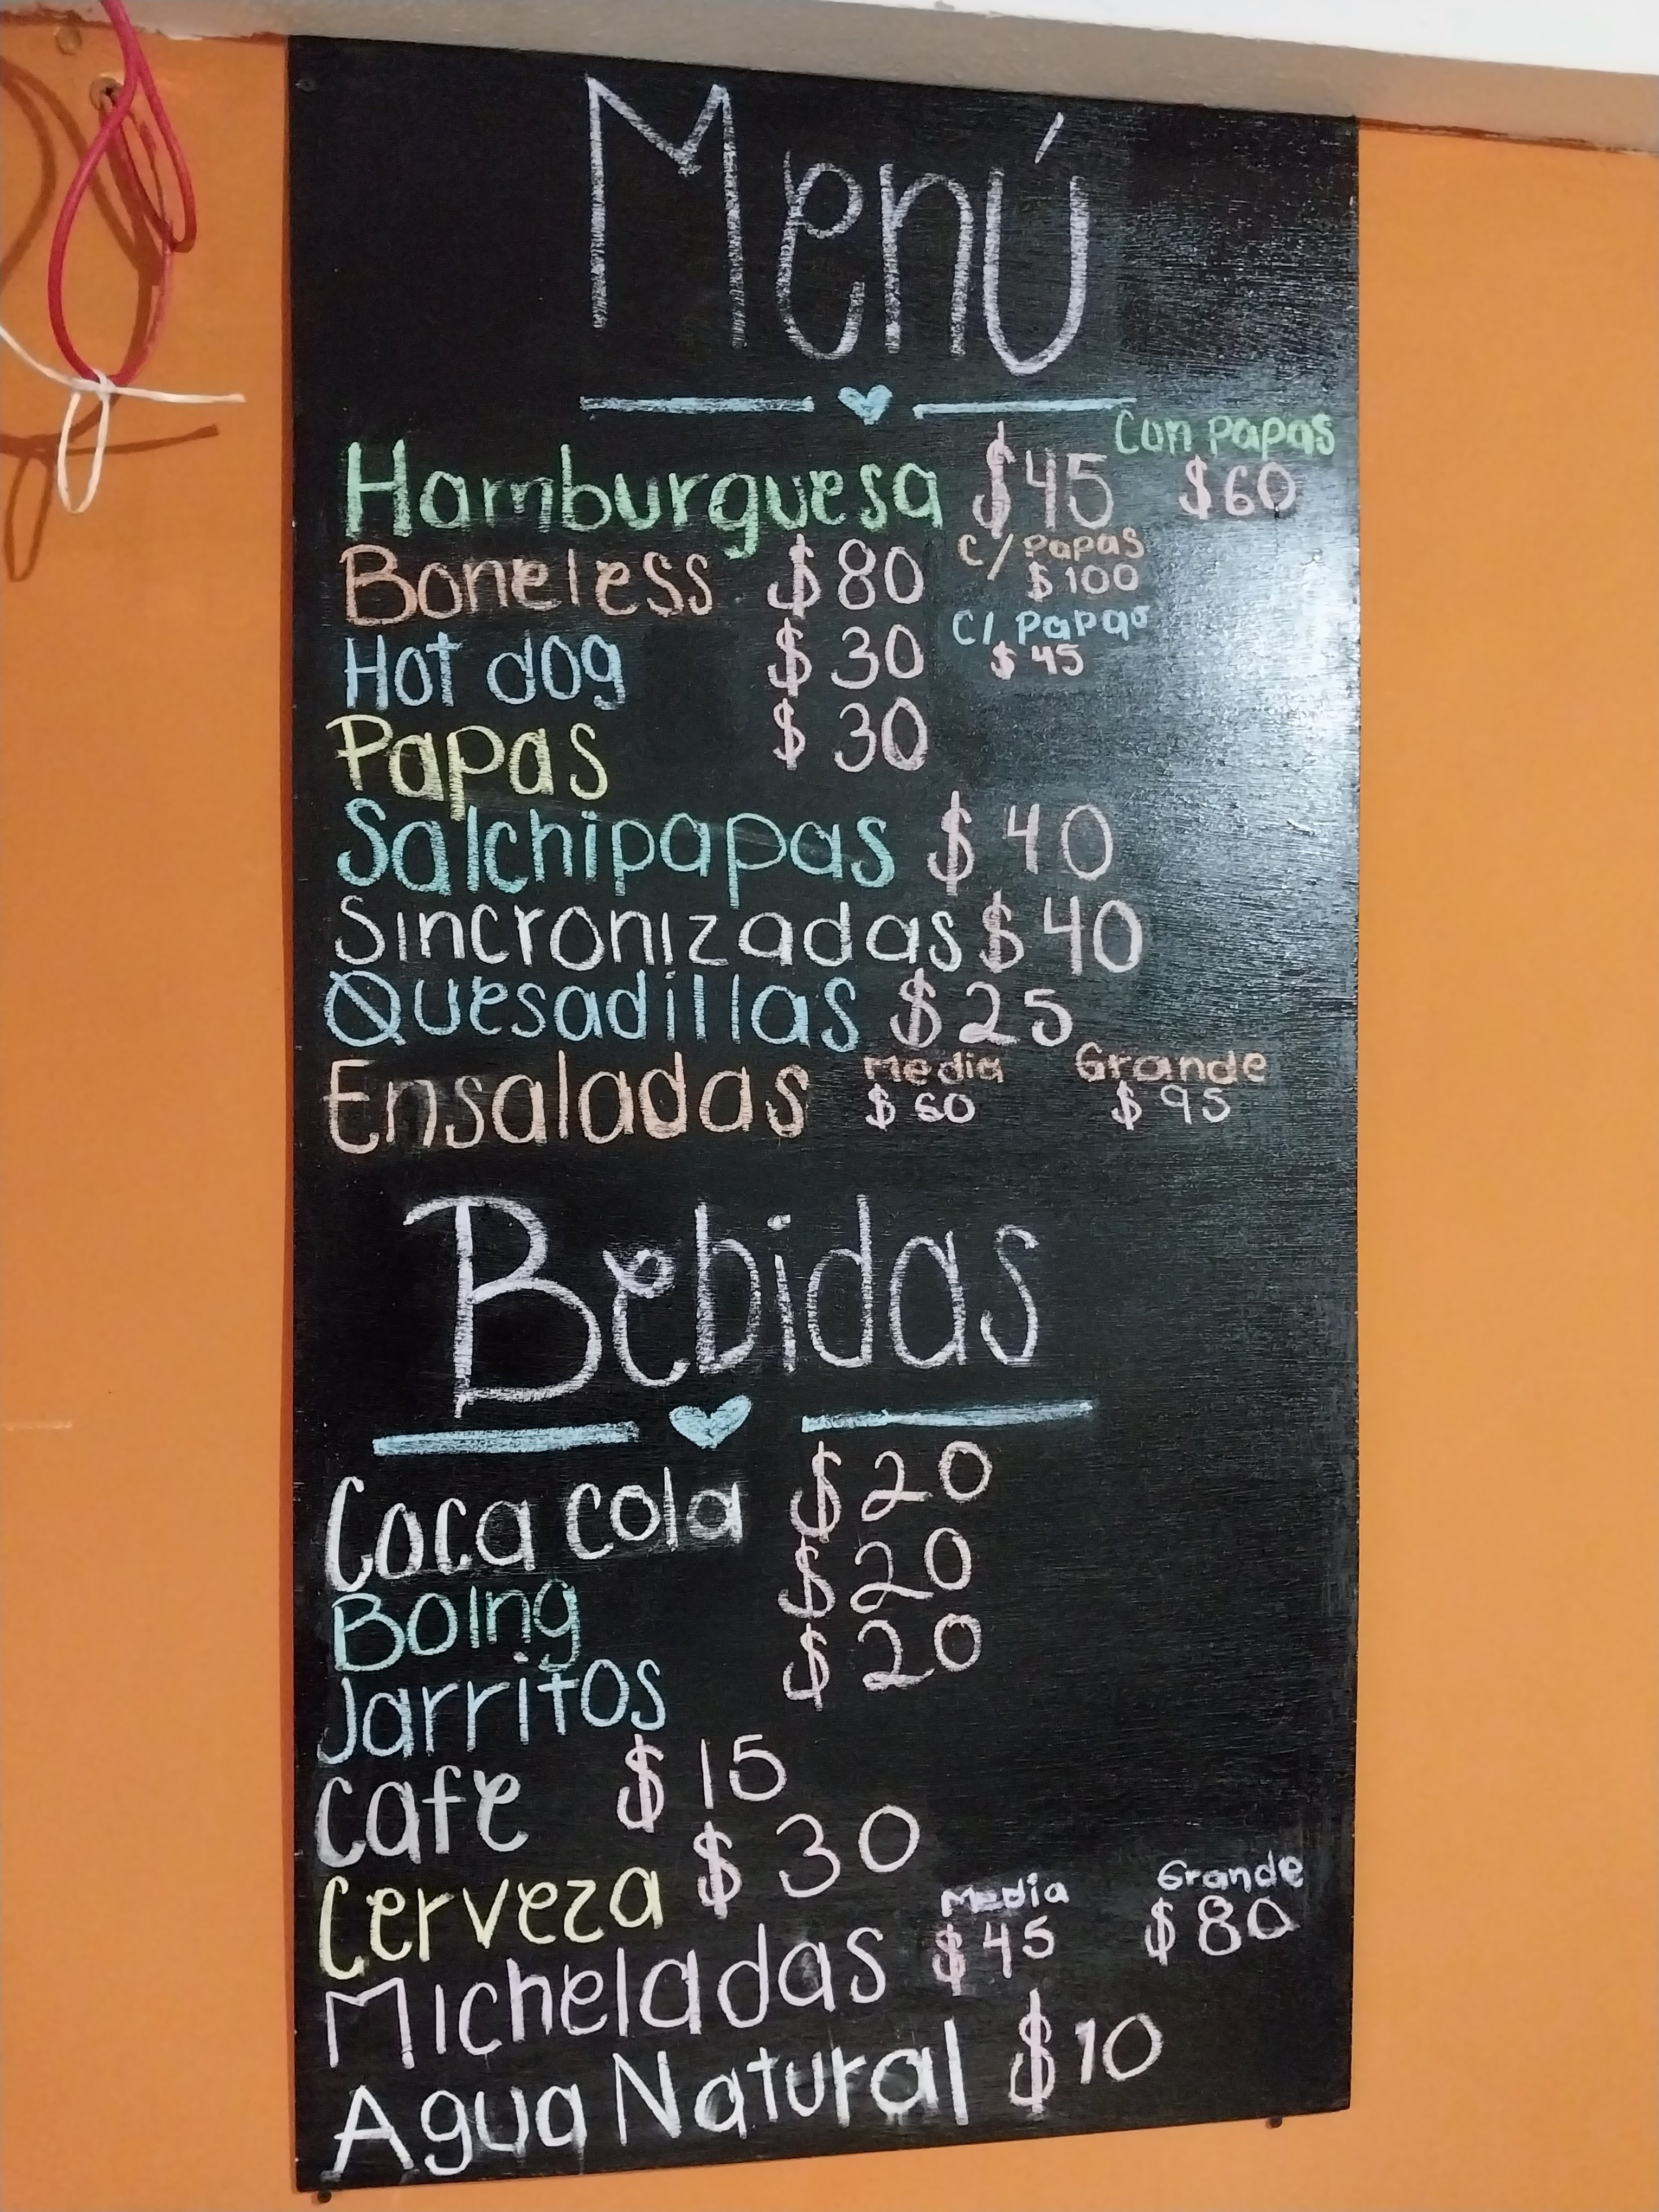 Menú
Con papas
Hamburguesa $45 $60
C/ papas
Boneless $80 $100
C/ Papas
Hot dog $30 $45
Papas $30
Salchipapas $40
Sincronizadas $40
Quesadillas $25
Media Grande
Ensaladas $60 $95
Bebidas
Coca cola $20
Boing $20
Jarritos $20
Cafe $15
Cerveza $30
Media Grande
Micheladas $45 $80
Agua Natural $10